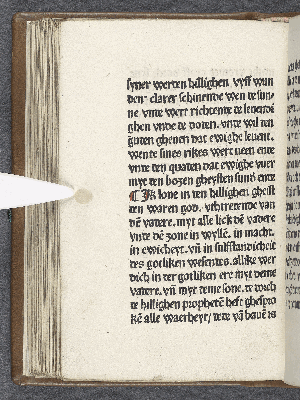 syner werten hillighen vyff wun
den clarer schinende wen de sun
ne vnte wert richtente de leuendi
ghen vnde de doten. vnte wil ten
guten gheuen dat ewighe leuent.
wente sines rikes wert neen ente
vnte ten quaten dat ewighe vuer
myt ten bozen gheysten sund ente
¶ Ik loue in ten hillighen gheist
ten waren god. vthtretende van
dē vatere. myt alle lick dē vatere
vnte dē zone in wyllē. in macht.
in ewicheyt. vn̄ in sulfstandicheit
des gotliken wesentes. allike wer
dich in ter gotliken ere myt deme
vatere. vn̄ myt teme sone. te dorch
te hillighen prophetē heft ghespro
kē alle waerheyt, tete vā bauē is